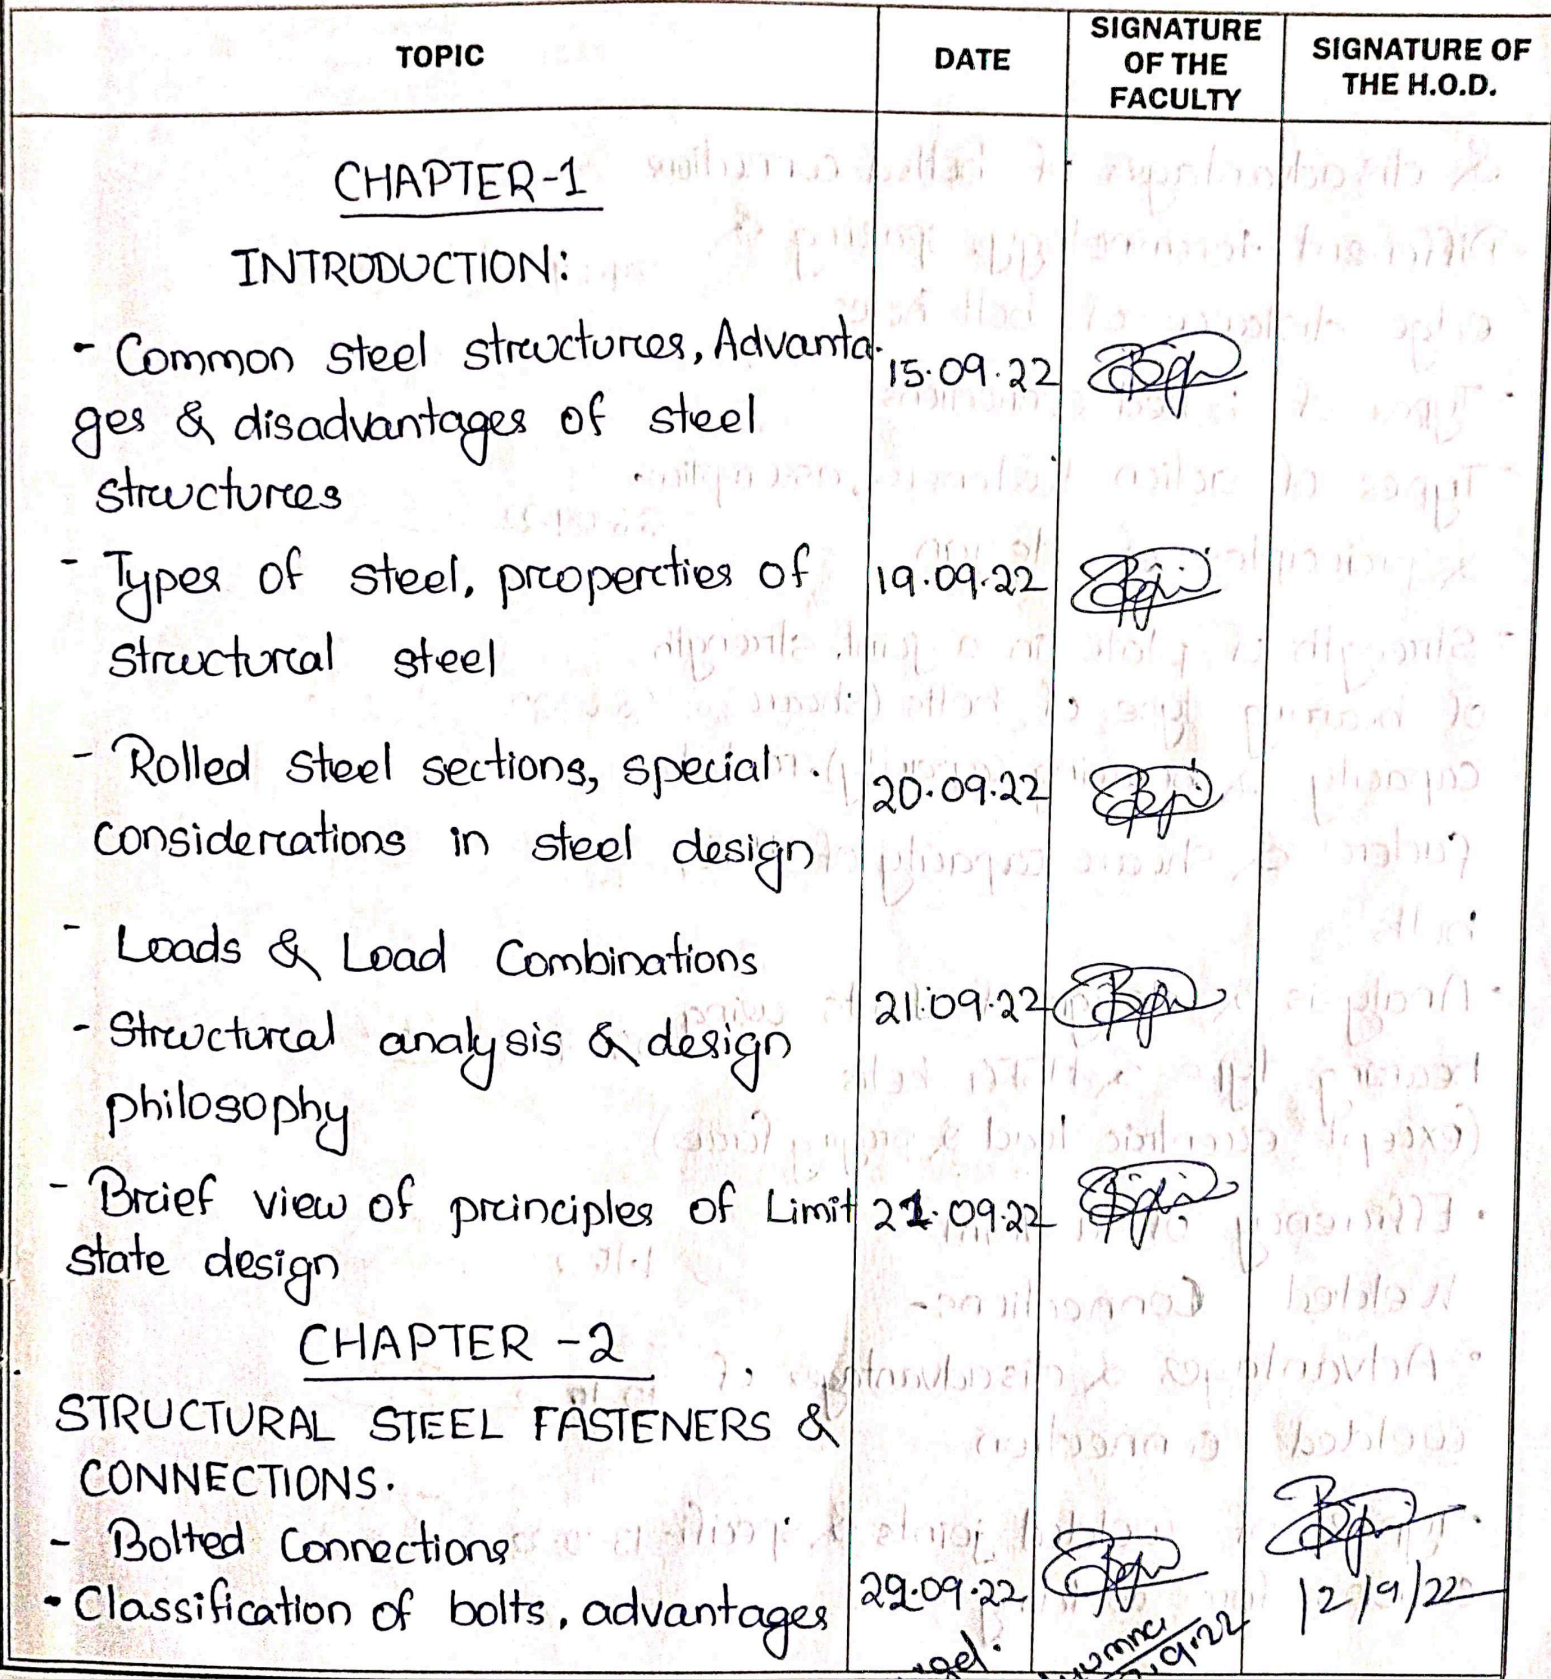 TOPIC DATE SIGNATURE OF THE FACULTY SIGNATURE OF THE H.O.D.
CHAPTER-1
INTRODUCTION:
- Common steel structures, Advanta- 15.09.22
ges & disadvantages of steel
structures
- Types of steel, properties of 19.09.22
structural steel
- Rolled steel sections, special 20.09.22
considerations in steel design
- Loads & Load Combinations
21.09.22
- Structural analysis & design
philosophy
- Brief view of principles of Limit 21.09.22
state design
CHAPTER -2
STRUCTURAL STEEL FASTENERS &
CONNECTIONS.
- Bolted Connections
- Classification of bolts, advantages 22.09.22
12/9/22